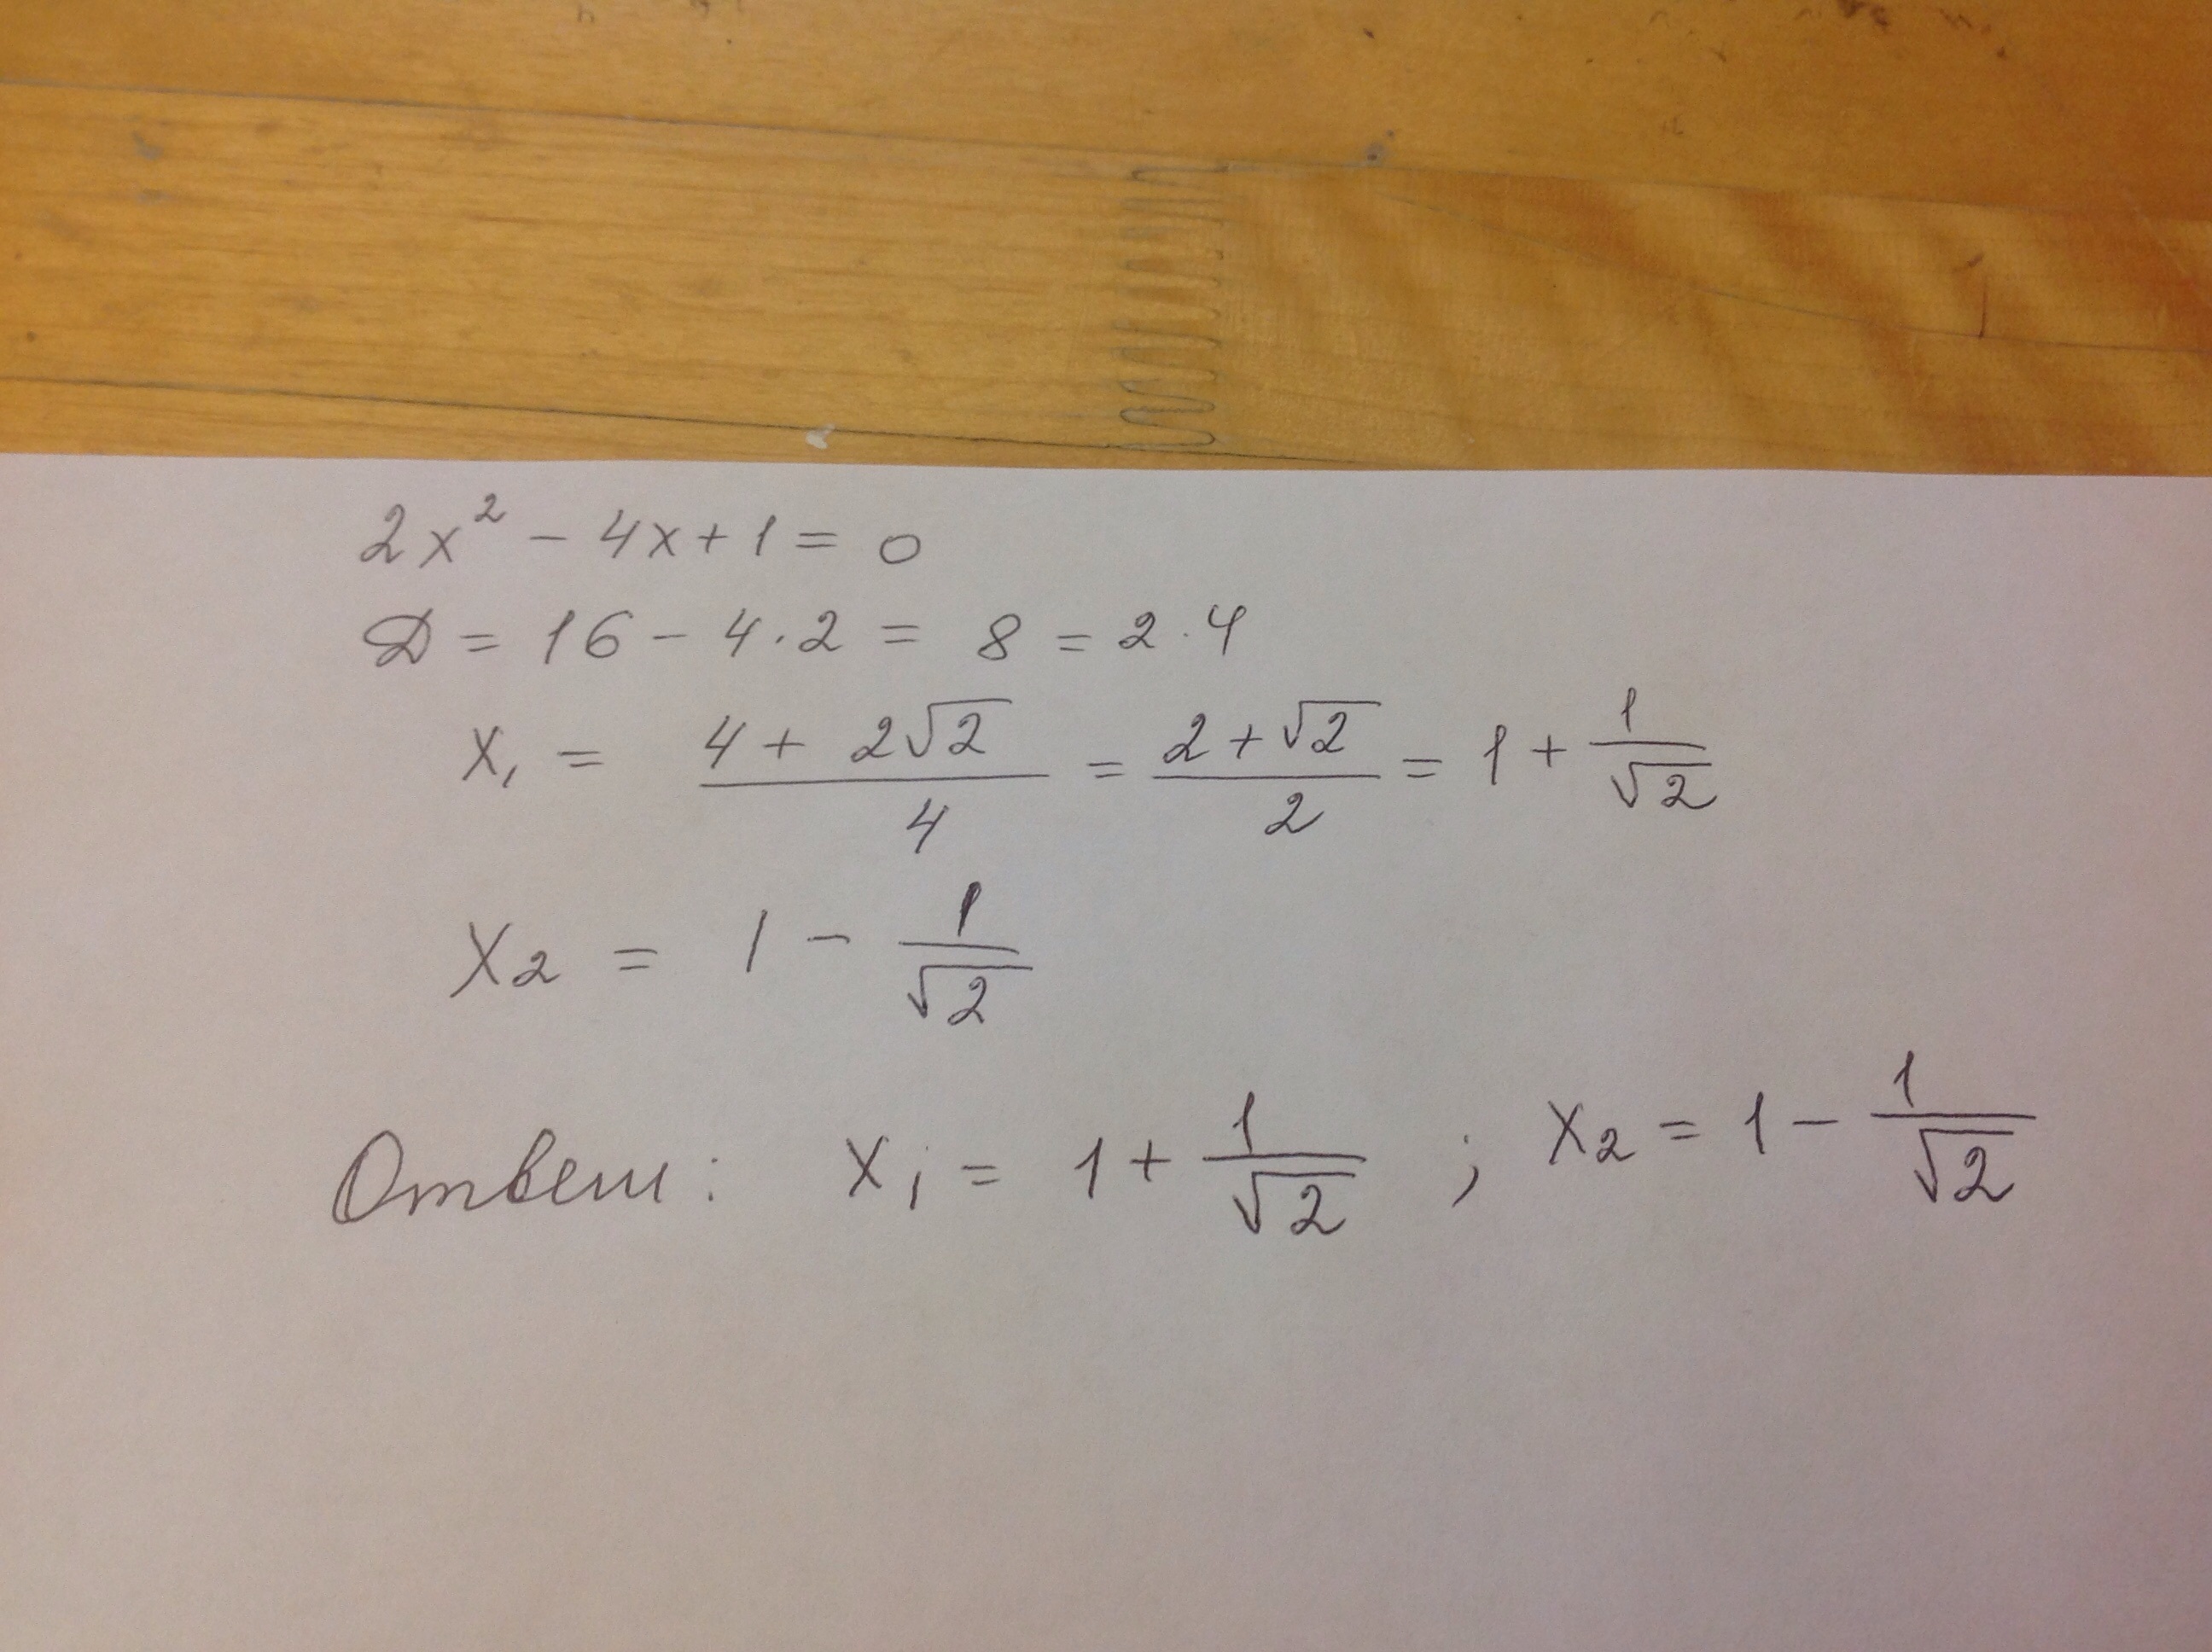 2x² - 4x + 1 = 0
D = 16 - 4·2 = 8 = 2·4
x₁ = (4 + 2√2)/4 = (2 + √2)/2 = 1 + 1/√2
x₂ = 1 - 1/√2
Ответ: x₁ = 1 + 1/√2 ; x₂ = 1 - 1/√2